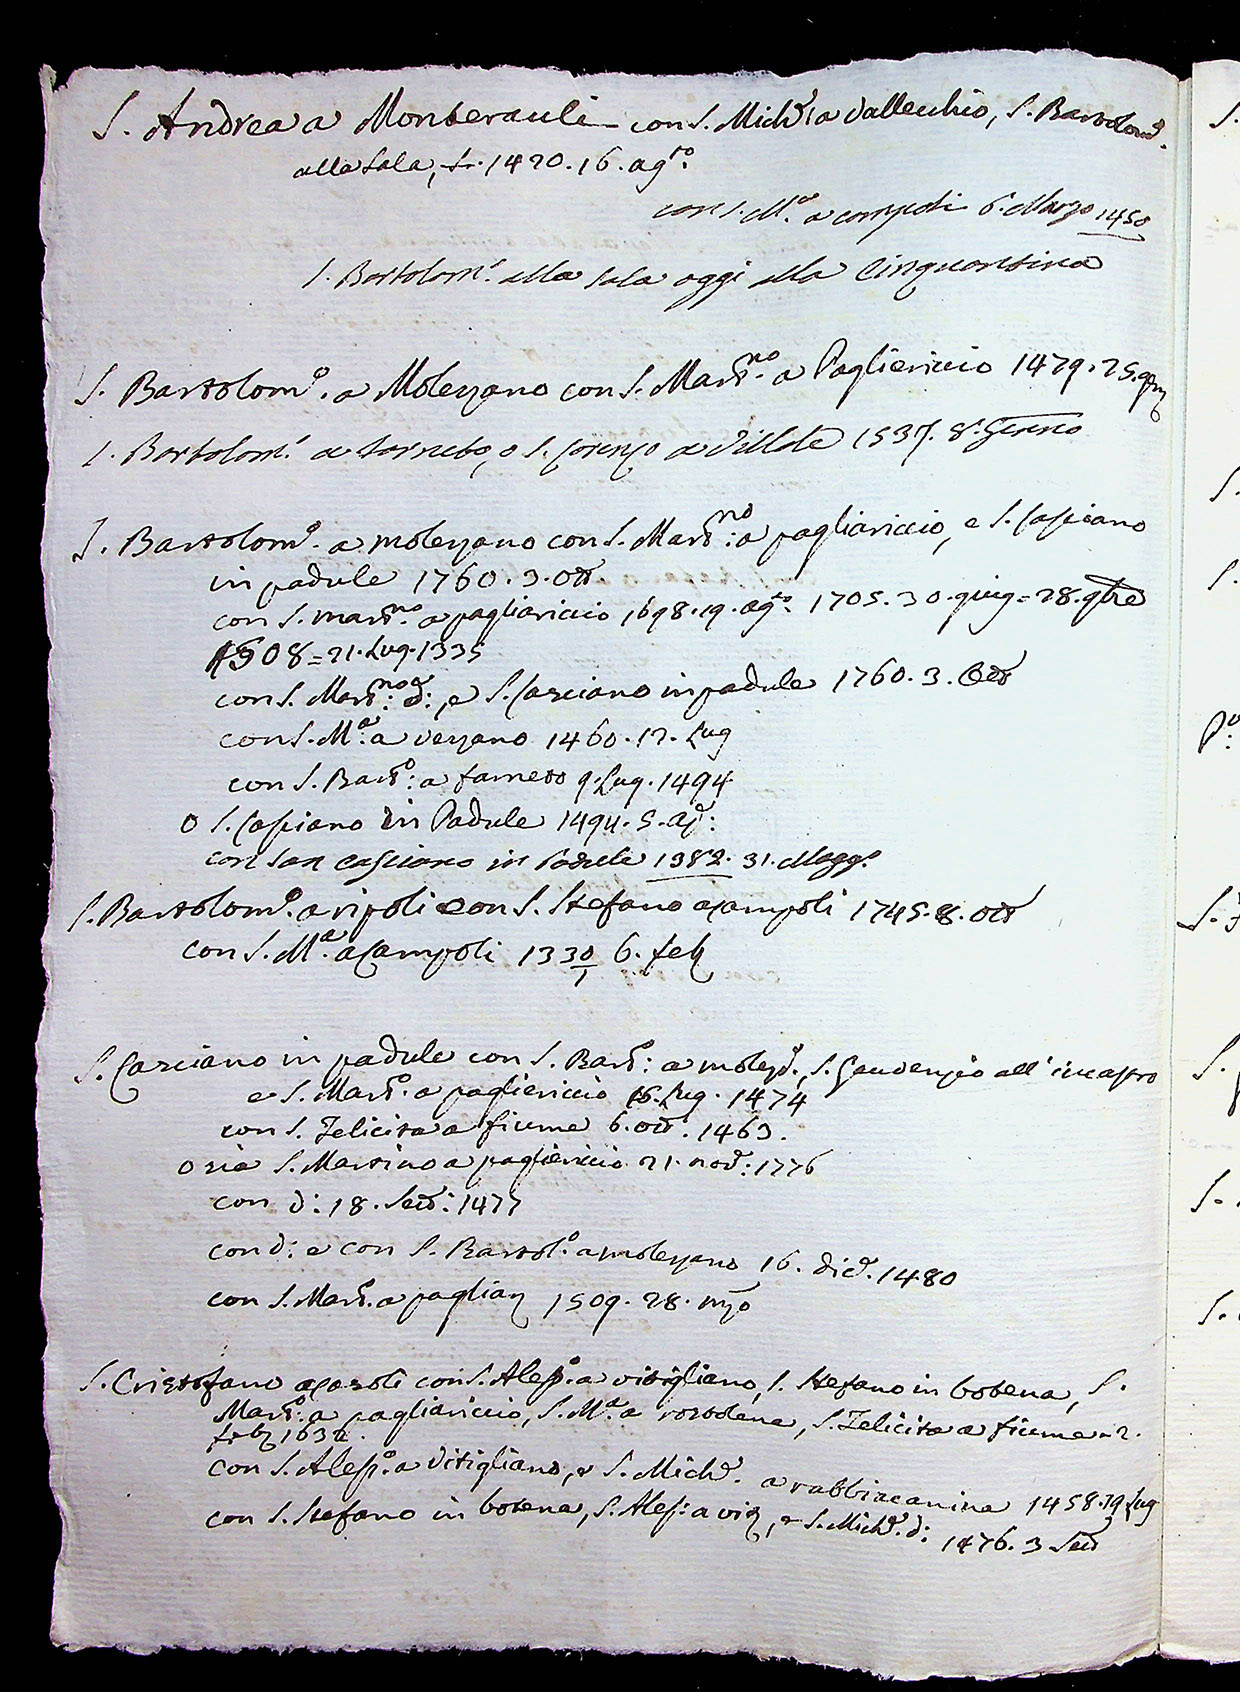 S. Andrea a Monterauli con S. Mich.e a Vallecchio, S. Bartolom.o
alla Sala, 1420. 16. ag.to
con S. M.a a Campoli 6. Marzo 1450
S. Bartolom.o alla Sala oggi alla Cinquantina
S. Bartolom.o a Molezzano con S. Mart.no a Pagliericcio 1479. 25.
S. Bartolom.o a Farneto, o S. Lorenzo a Villole 1537. 8.
S. Bartolom.o a molezzano con S. Mart.no a pagliariccio, e S. Casciano
in padule 1760. 3. ott
con S. mart.no a pagliariccio 1698. 19. ag.to 1705. 30. giug = 28. 9bre
1508 = 21. Lug. 1335
con S. Mart.no d.o, e S. Casciano in padule 1760. 3. Ott
con S. M.a a vezzano 1460. 17. Lug
con S. Bart.o a farneto 9. Lug. 1494
o S. Casciano in Padule 1494. 5.
con San Casciano in Padule 1382. 31. Magg.o
S. Bartolom.o a ripoli con S. Stefano a Campoli 1745. 8. ott
con S. M.a a Campoli 1330/1 6. feb
S. Casciano in padule con S. Bart.o a molez.o, S. Gaudenzio all' incastro
e S. Mart.o a pagliericcio 16. Lug. 1474
con S. Felicita a fiume 6. ott. 1463.
o sia S. Martino a pagliericcio 21. nov: 1776
con d: 18. Sett: 1477
con d: e con S. Bartol.o a molezzano 16. dic. 1480
con S. Mart. a pagliar 1509. 28. mzo
S. Cristofano a Casoli con S. Aless.o a vitigliano, S. Stefano in botena, S.
Mart.o a pagliariccio, S. M.a a rostolena, S. Felicita a fiume - 2.
feb 1632.
con S. Aless.o a Vitigliano, e S. Mich.e a rabbiacanina 1458. 19 Lug
con S. Stefano in botena, S. Aless: a vit, e S. Mich.e d: 1476. 3 Sett